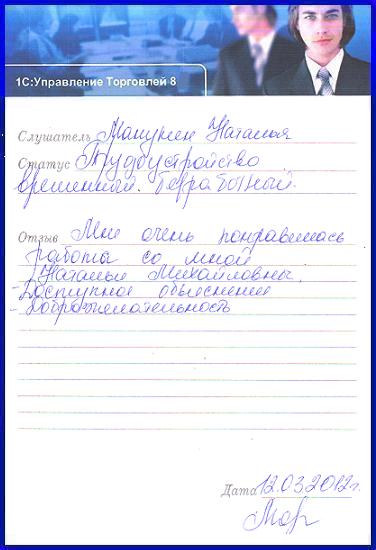 1С:Управление Торговлей 8
Слушатель Наталия
Статус Трудоустройство
временный. безработный.
Отзыв Мне очень понравилась
работа со мной
Натальи Михайловны,
- Доступное объяснение
- доброжелательность
Дата 12.03.2012г.